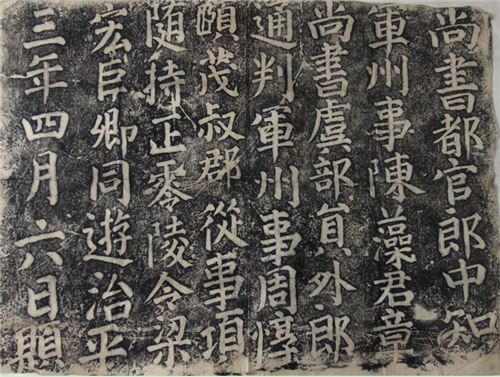 尚書都官郎中知
軍州事陳藻君章
尚書虞部員外郎
通判軍州事周惇
頤茂叔郡從事項
隨持正零陵令梁
宏巨卿同遊治平
三年四月六日題